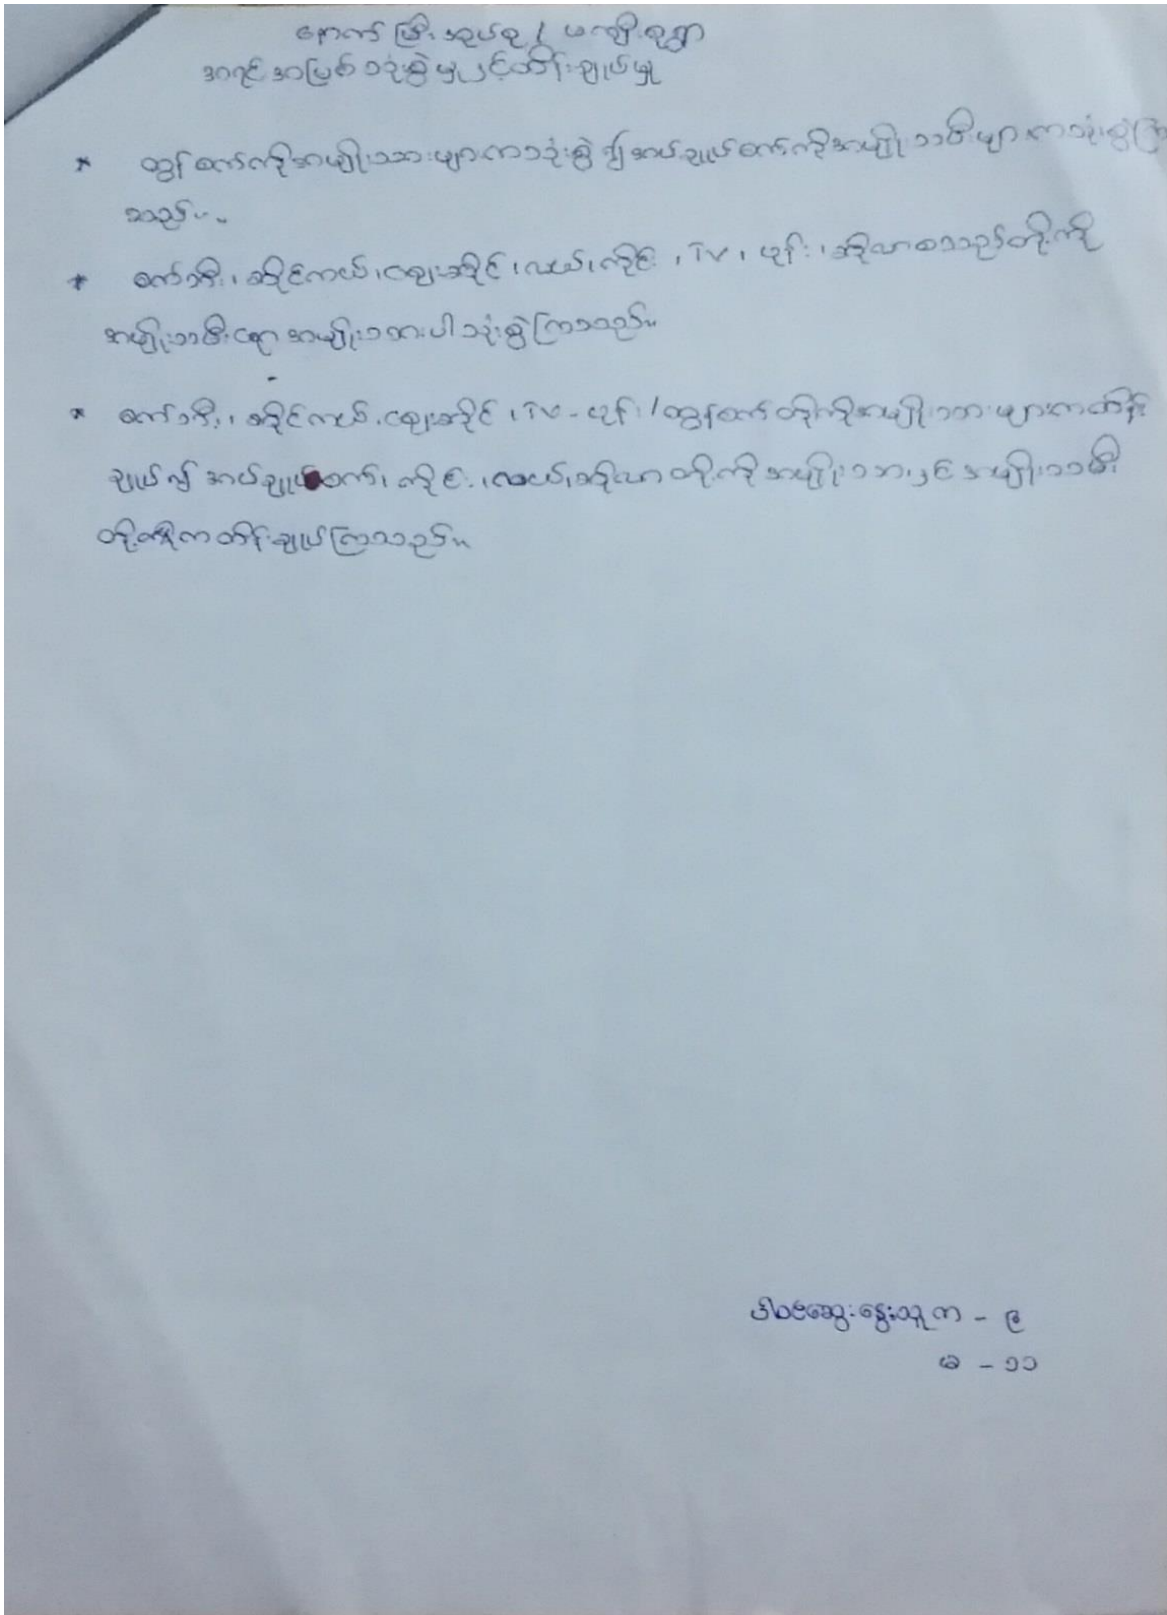 နောက်မြီးအုပ်စု / မကျီးစုရွာ
အရင်းအမြစ်သုံးစွဲမှုနှင့်ထိန်းချုပ်မှု
* ထွန်စက်ကိုအမျိုးသားများကသုံးစွဲ၍အပ်ချုပ်စက်ကိုအမျိုးသမီးများကသုံးစွဲကြ
သည်။
* စက်ဘီး၊ ဆိုင်ကယ်၊ ဈေးဆိုင်၊ လယ်၊ ကိုင်း၊ TV၊ ဖုန်း၊ ဆိုလာစသည်တို့ကို
အမျိုးသမီးရောအမျိုးသားပါသုံးစွဲကြသည်။
* စက်ဘီး၊ ဆိုင်ကယ်၊ ဈေးဆိုင်၊ TV - ဖုန်း / ထွန်စက်တို့ကိုအမျိုးသားများကထိန်း
ချုပ်၍ အပ်ချုပ်စက်၊ ကိုင်း၊ လယ်၊ ဆိုလာတို့ကိုအမျိုးသားနှင့်အမျိုးသမီး
တို့ကထိန်းချုပ်ကြသည်။
ပါဝင်ဆွေးနွေးသူ က - ၉
မ - ၁၁